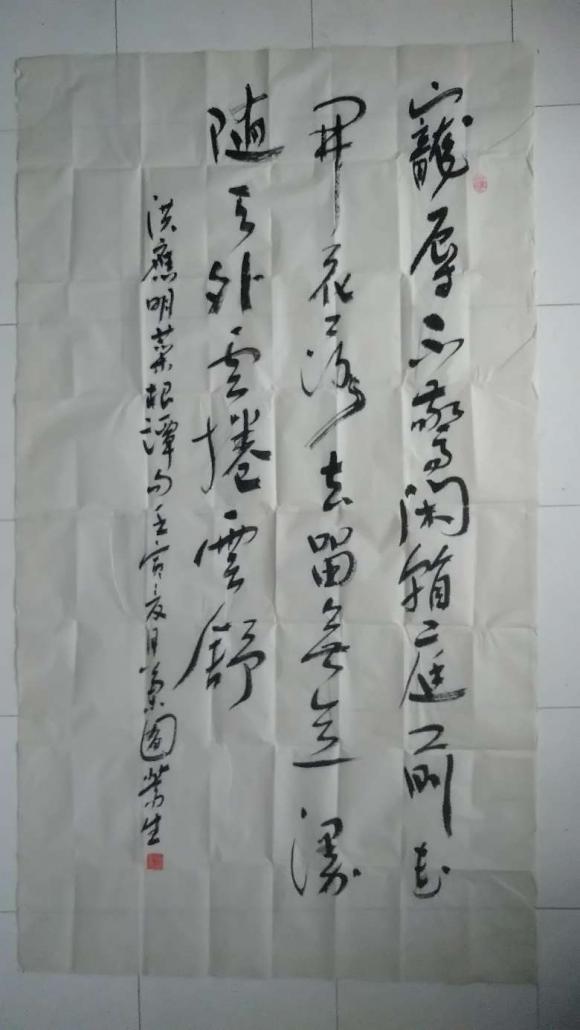 寵辱不驚閑看庭前花
開花落去留無意漫
隨天外雲捲雲舒
洪應明菜根譚句壬寅夏月園榮生